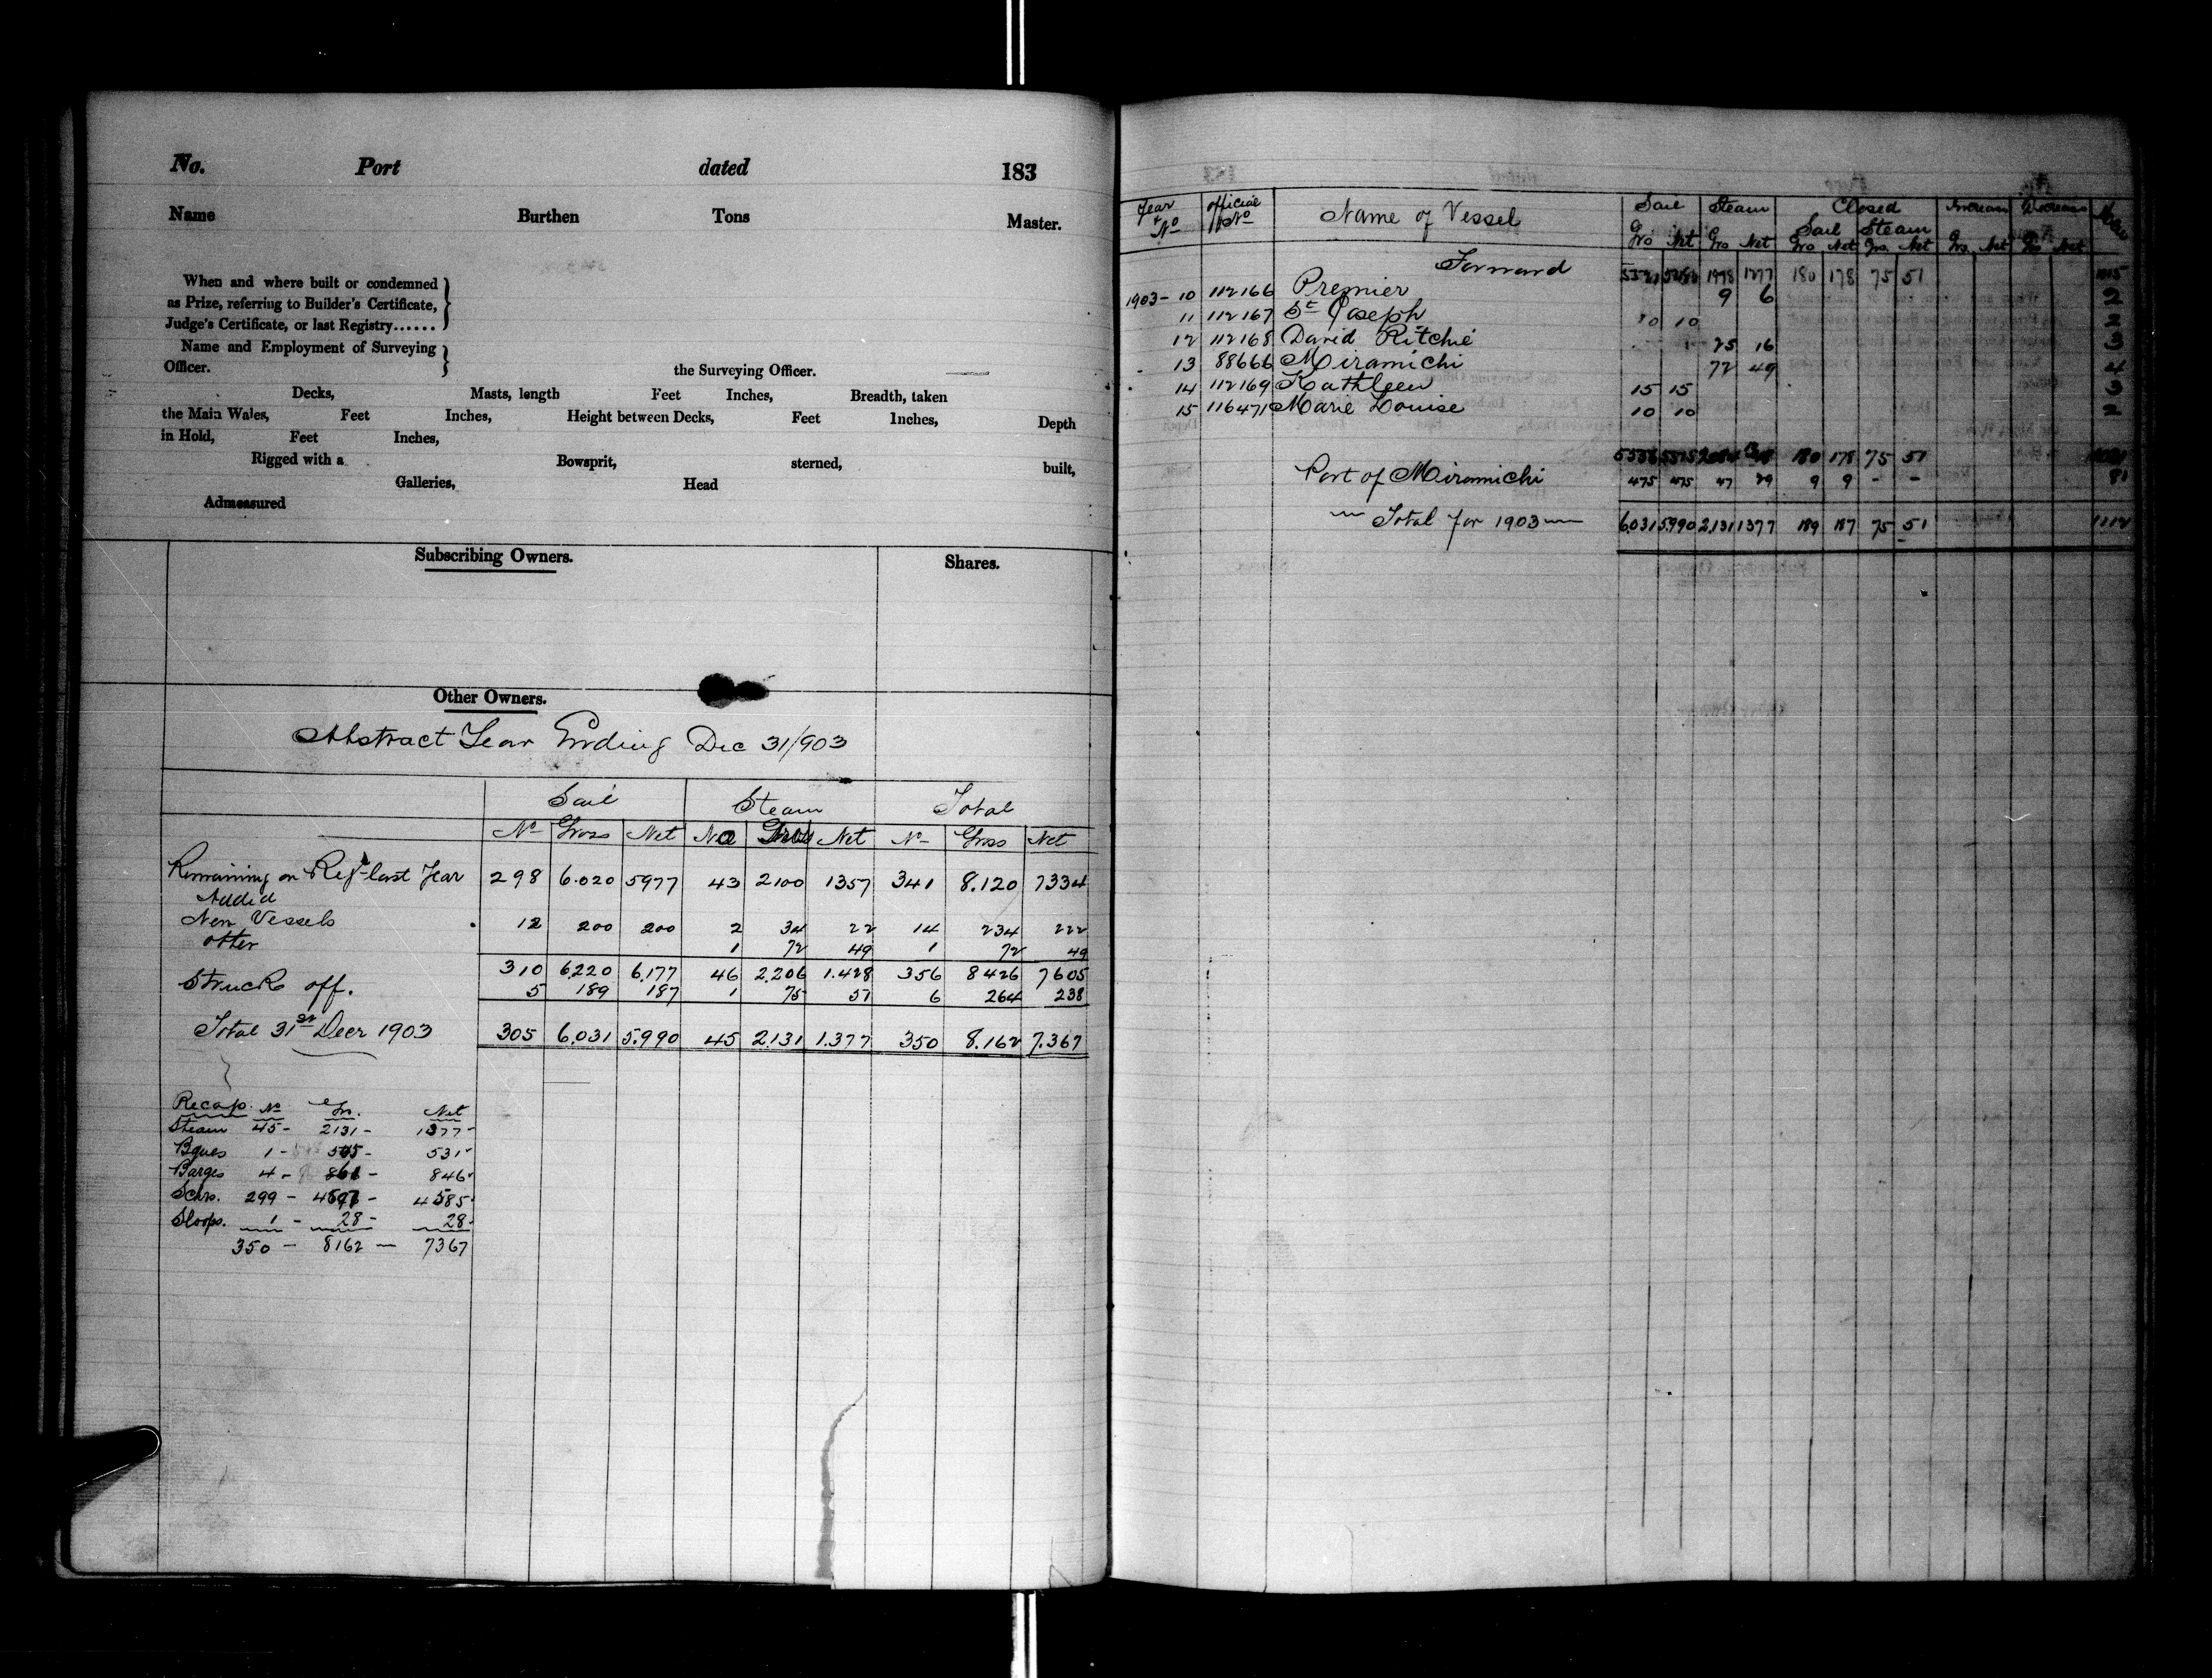 No. Port dated 183
Name Burthen Tons Master.
When and where built or condemned
as Prize, referring to Builder's Certificate,
Judge's Certificate, or last Registry......
Name and Employment of Surveying
Officer. the Surveying Officer.
Decks, Masts, length Feet Inches, Breadth, taken
the Main Wales, Feet Inches, Height between Decks, Feet Inches, Depth
in Hold, Feet Inches,
Rigged with a Bowsprit, sterned, built,
Galleries, Head
Admeasured
Subscribing Owners. Shares.
Other Owners.
Abstract Year Ending Dec 31/903
Sail Steam Total
No Gross Net No Net No Gross Net
Remaining on Reg. last Year 298 6.020 5977 43 2100 1357 341 8.120 7334
Added
New Vessels 12 200 200 2 34 22 14 234 222
other 1 72 49 1 72 49
310 6220 6.177 46 2.206 1.428 356 8426 7605
Struck off. 5 189 187 1 75 51 6 264 238
Total 31st Decr 1903 305 6.031 5.990 45 2.131 1.377 350 8.162 7.367
Recap. No Gr. Net
Steam 45 - 2131 - 1377 -
Bques 1 - 531 -
Barges 4 - 846 -
Schrs. 299 - 4585 -
Sloops. 1 - 28 - 28 -
350 - 8162 - 7367
Year & No official No Name of Vessel Sail Steam Closed Increase Decrease
Sail Steam
Gro Net Gro Net Gro Net Grs. Net Grs. Net Net
Forward 1277 180 178 75 51
1903 - 10 112166 Premier 9 6 2
11 112167 St Joseph 10 10 2
12 112168 David Ritchie 25 16 3
13 88666 Miramichi 72 49 4
14 112169 Kathleen 15 15 3
15 116471 Marie Louise 10 10 2
180 178 75 51
Port of Miramichi 475 475 47 29 9 9 - - 81
Total for 1903 6.031 5.990 2.131 1377 189 187 75 51 1112